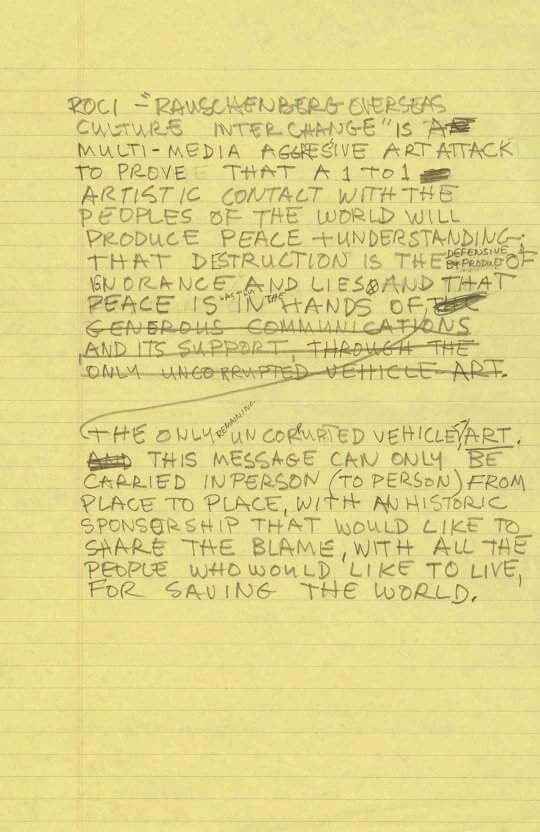 ROCI - "RAUSCHENBERG OVERSEAS
CULTURE INTERCHANGE" IS A
MULTI-MEDIA AGGRESIVE ART ATTACK
TO PROVE THAT A 1 TO 1
ARTISTIC CONTACT WITH THE
PEOPLES OF THE WORLD WILL
PRODUCE PEACE + UNDERSTANDING.
THAT DESTRUCTION IS THE DEFENSIVE BY PRODUCT OF
IGNORANCE AND LIES AND THAT
PEACE IS IN THE HANDS OF,
GENEROUS COMMUNICATIONS
AND ITS SUPPORT, THROUGH THE
ONLY UNCORRUPTED VEHICLE - ART.
THE ONLY REMAINING UNCORRUPTED VEHICLE, ART.
THIS MESSAGE CAN ONLY BE
CARRIED IN PERSON (TO PERSON) FROM
PLACE TO PLACE, WITH AN HISTORIC
SPONSORSHIP THAT WOULD LIKE TO
SHARE THE BLAME, WITH ALL THE
PEOPLE WHO WOULD LIKE TO LIVE,
FOR SAVING THE WORLD.